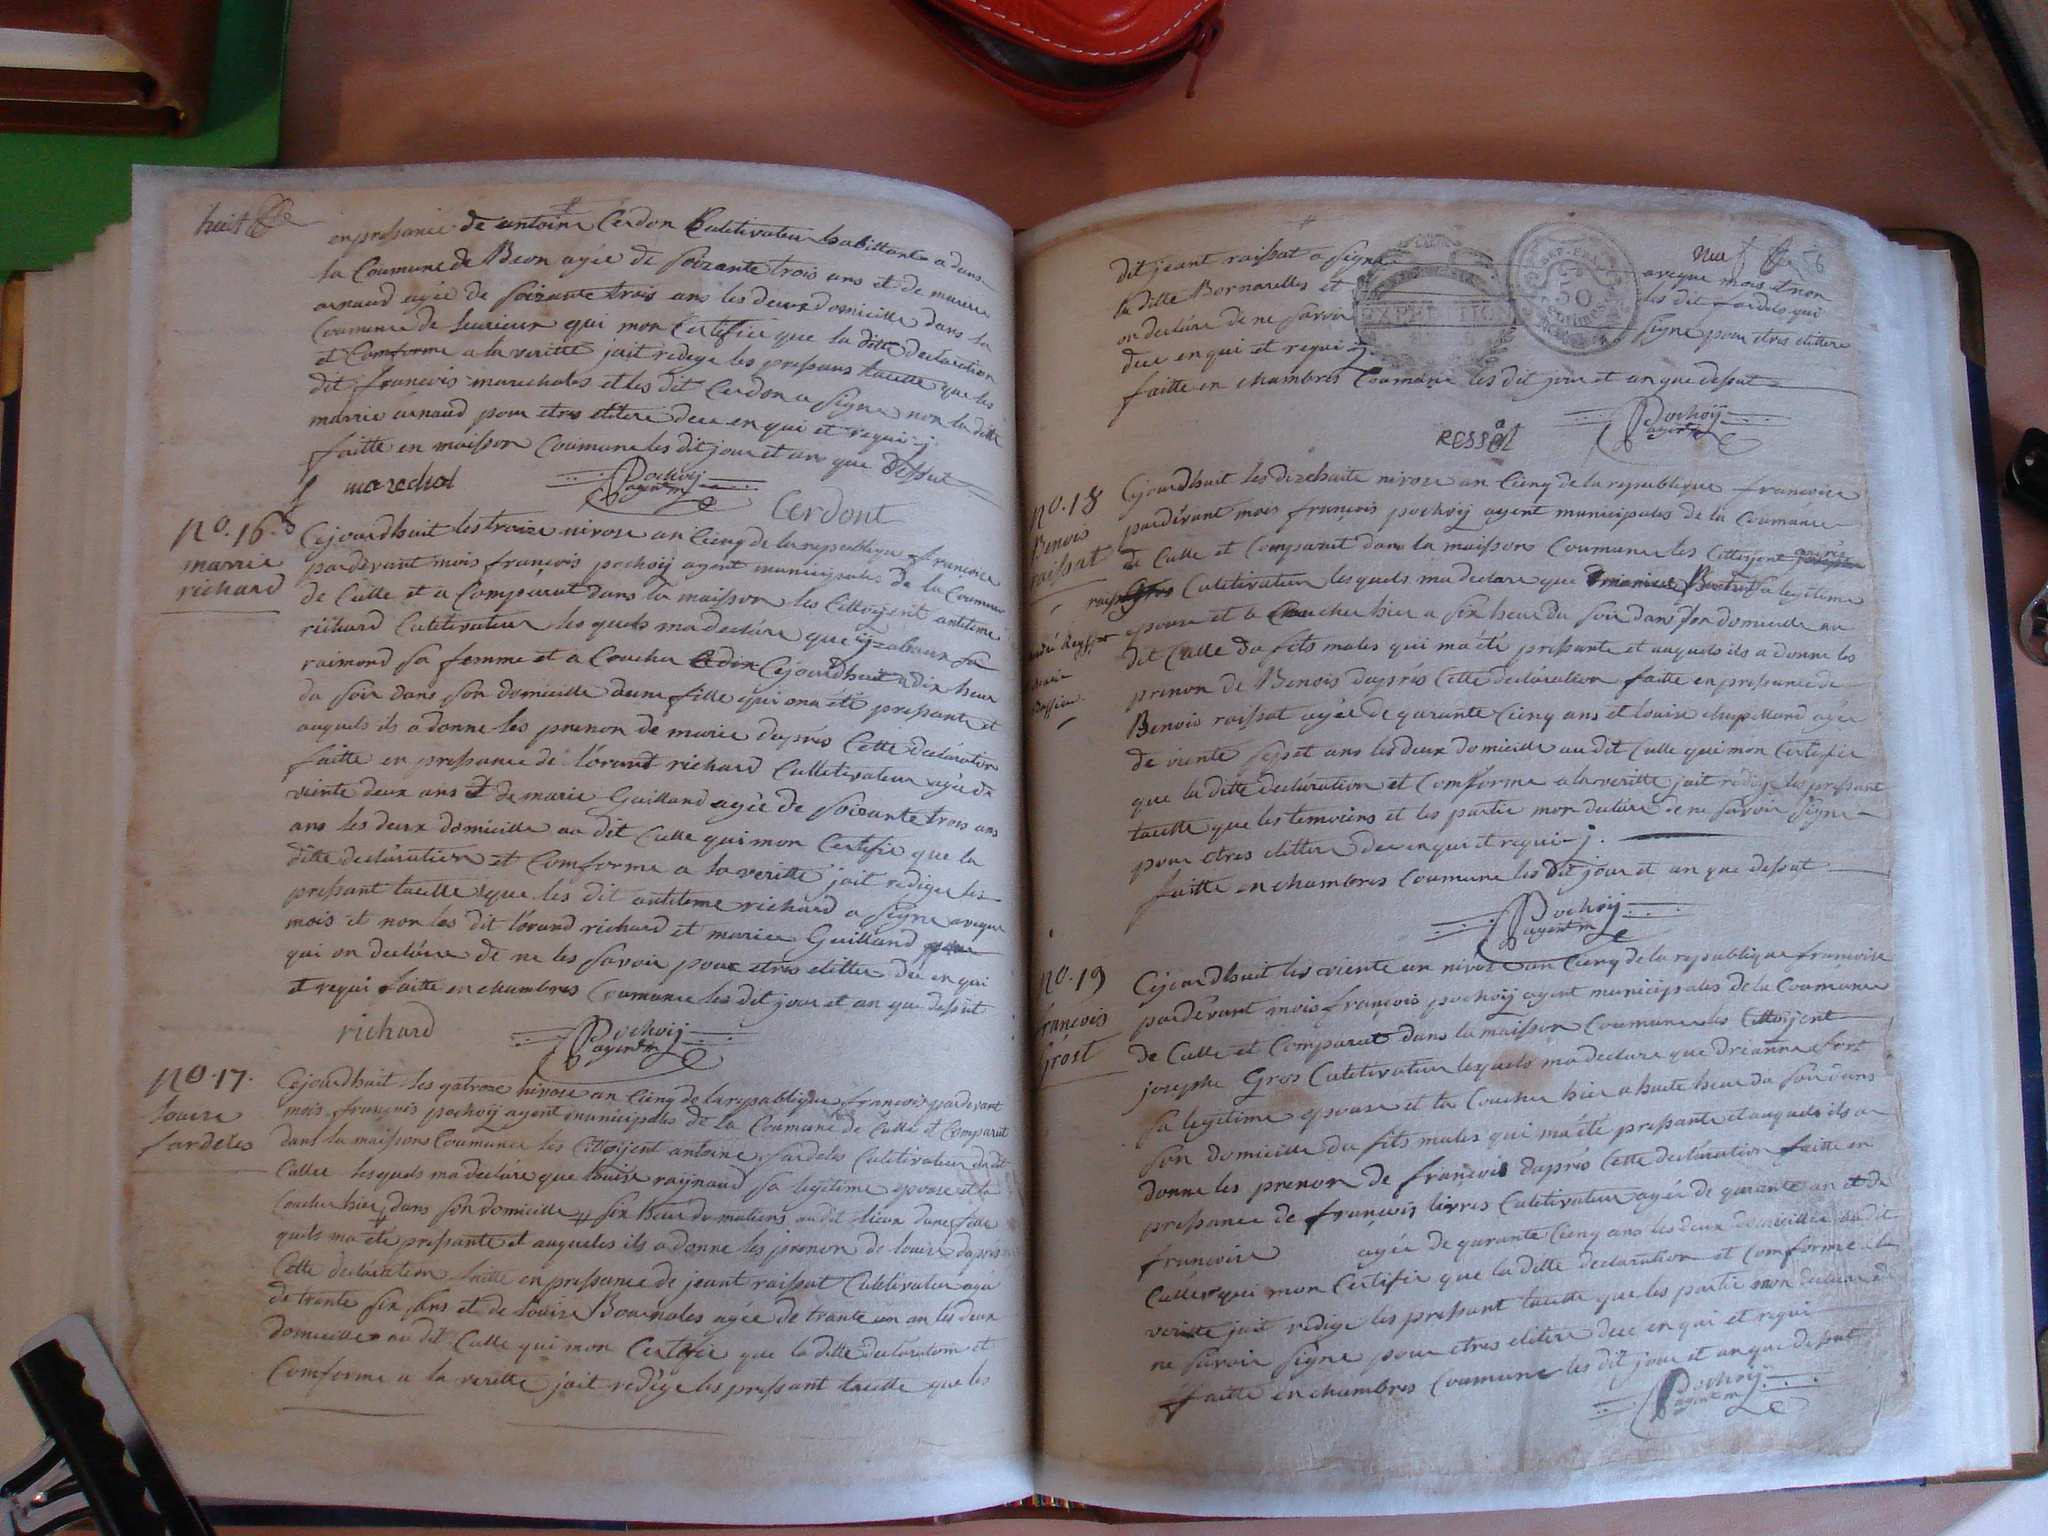 huit
en pressance de antoine Cerdon Cultivateur habittant a dans
la Coumune de Beon agée de soizante trois ans et de marie
arnaud agée de soizante trois ans les deux domicille dans la
Coumune de qui mon Certifié que la ditte declaration
et Comforme a la veritté jait redige les pressans laette que les
dit francois marechales et les dit Cerdon a signe non la ditte
marrie arnaud pour etres elitere dee en qui et requi j.
faitte en maisson Coumune les dit jour et an que dessut
marechal Pochoÿ agent m Cerdont
no. 16.
marrie
richard
Cejourdhuit les treize nivose an Cienq de la republique francoice
pardevant mois francois pochoÿ agent municipales de la Coumune
de Culle et a Comparut dans la maisson les Cittoÿent antileme
richard Cultivateur les quels ma declare que ysabaux
raimond sa femme et a Coucher Cejourdhuit a dix heur
du soir dans son domicille dune fille qui ma été pressante et
auquels ils a donne les prenon de marie daprés Cette declaration
faitte en pressance de lorant richard Culletivateur agée de
viente deux ans et de marie Guilland agée de soixante trois ans
ans les deux domicille au dit Culle qui mon Certifié que la
ditte declaration et Comforme a la veritté jait redige les
pressant laette que les dit antileme richard a signe aveque
mois et non les dit lorand richard et mariee Guilland
qui on declare de ne les savoir pour etres elitter dee en qui
et requi faitte en chambres Coumune les dit jour et an que dessut
richard Pochoÿ agent m
no. 17.
louise
fardeles
Cejourdhuit les qatroze nivose an Cienq de la republique francois pardevant
mois francois pochoÿ agent municipales de la Coumune de Culle et Comparut
dans la maissons Coumune les Cittoÿent antoine fardeles Cultivateur du dit
Culle lesquels ma declare que louise raÿnaud sa legitime epouse et la
Coucher hier dans son domicille six heur du matiens au dit lieux dune fille
quels ma été pressante et auqueles ils a donne les prenon de louise daprés
Cette declaration faitte en pressance de jeant raissat Cultivateur agée
de trante six ans et de louise Bournales agée de trante un an les deux
domicille au dit Culle qui mon Certifie que la ditte declaration et
Comforme a la veritté jait redige les pressant laette que les
dit jeant raissat a signe aveque mois et non
la ditte Bornarelles et les dit fardeles qui
on declare de ne savoir signe pour etres elittere
dee en qui et requi j.
faitte en chambres Coumune les dit jour et an que dessut
EXPEDITION
REP. FRA.
50
CENTIMES
ressat Pochoÿ agent m
no. 18
Benois
raissat
Cejourdhuit les dizehuite nivose an Cienq de la republique francoise
pardevant mois françois pochoÿ agent municipales de la Coumune
de Culle et Comparut dans la maissons Coumune les Cittoÿent
Cultivateur lesquels ma declare que sa legetime
epouse et a Coucher hier a six heur du soir dans son domicille au
dit Culle du fits males qui ma été pressante et auquels ils a donne les
prenon de Benois daprés Cette declaration faitte en pressance de
Benois raissat agée de qarante Cienq ans et louise agée
de viente sepet ans les deux domicille au dit Culle qui mon Certifie
que la ditte declaration et Comforme a la veritté jait redige les pressant
laette que les temoiens et les partie mon declare de ne savoir signe
pour etres elitter dee en qui et requi j.
faitte en chambres Coumune les dit jour et an que dessut
Pochoÿ agent m
no. 19
francois
Grost
Cejourdhuit les viente un nivose an Cienq de la republique francoise
pardévant mois françois pochoÿ agent municipales de la Coumune
de Culle et Comparut dans la maisson Coumune les Cittoÿent
josephe Gros Cultivateur lesquels ma declare que drianne fort
sa legitime epouse et la Coucher hier a huite heur du soir dans
son domicille du fits males qui ma été pressante et auquels ils a
donne les prenon de françois daprés Cette declaration faitte en
pressance de françois livres Cultivateur agée de qarante an et de
francoise agée de qarante Cienq ans les deux domicille au dit
Culle qui mon Certifie que la ditte declaration et Comforme a la
veritte jait redige les pressant laette que les partie mon declare de
ne savoir signe pour etres elitere dee en qui et requi
faitte en chambres Coumune les dit jour et an que dessut
Pochoÿ agent m